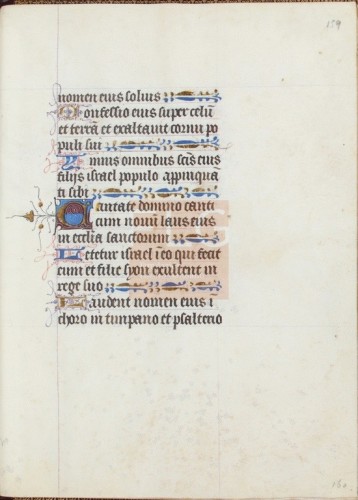 159
nomen eius solius
Confessio eius super celū
et terrā et exaltavit cornu po
puli sui
Ymnus omnibus scīs eius
filijs israel populo appinquā
ti sibi
Cantate domino canti
cum novū laus eius
in ecclīa sanctorum
Letetur israel ī eo qui fecit
eum et filie syon exultent in
rege suo
Laudent nomen eius ī
choro in timpano et psalterio